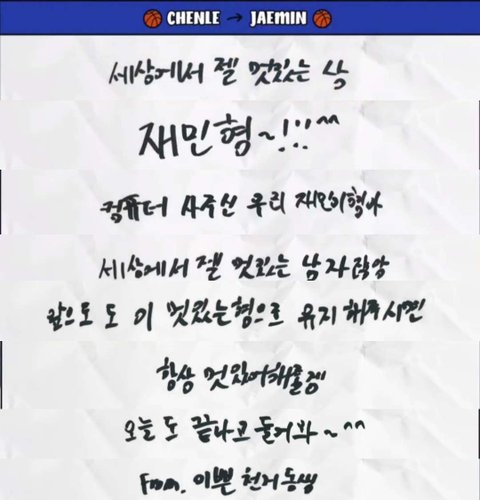 CHENLE → JAEMIN
세상에서 젤 멋있는 남
재민형~!!!^^
컴퓨터 사주신 우리 재민이형아
세상에서 젤 멋있는 남자랍
앞으로도 이 멋있는형으로 유지해주시면
항상 멋있어해줄겡
오늘도 끝나고 들어와~^^
From. 이쁜 천러동생